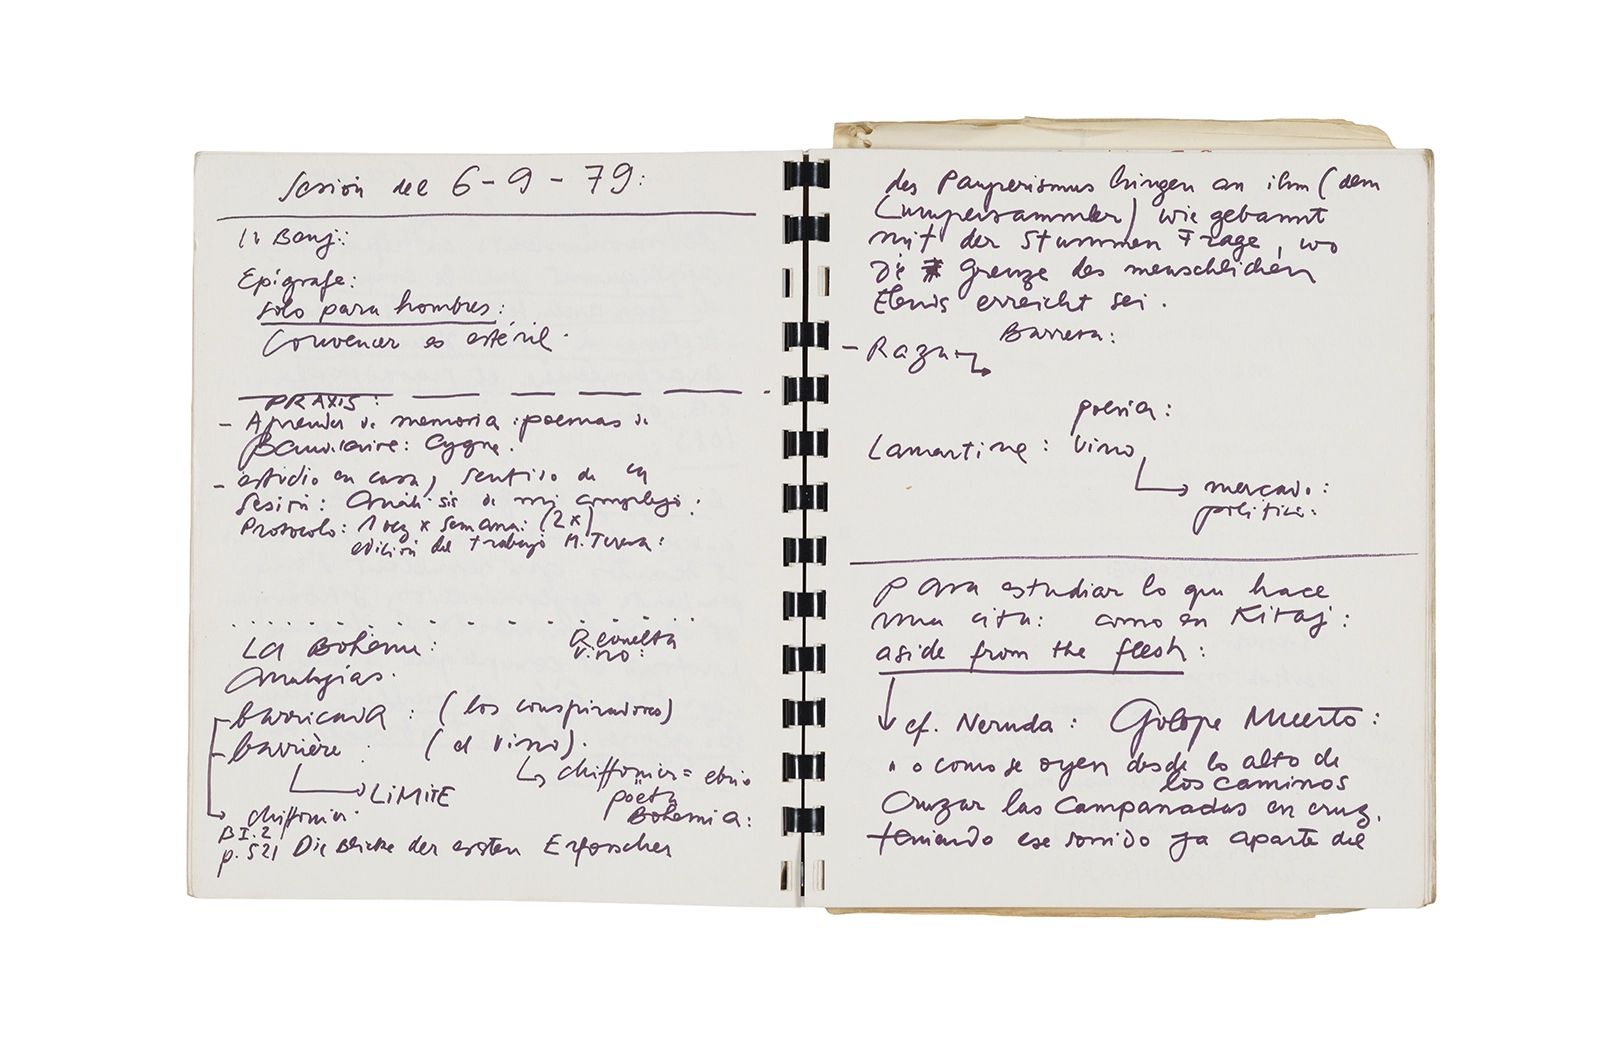 Sesión del 6-9-79:
W Benj::
Epígrafe:
solo para hombres:
Convencer es estéril.
PRAXIS:
- Aprender de memoria: poemas de
Baudelaire: Cygne.
- estudio en casa, sentido de la
sesión: Análisis de mi complejo:
Protocolo: 1 vez x semana: (2x)
edición del trabajo M. Teresa:
La Bohème: Revuelta
vino:
Analogías.
barricada : (los conspiradores)
barrière : (el vino).
chiffonier = ebrio
LIMITE
poeta
Bohemia:
chiffonier.
B I.2,
p. 521 Die Blicke der ersten Erforscher
des Pauperismus hingen an ihm (dem
Lumpensammler) wie gebannt
mit der stummen Frage, wo
die Grenze des menschlichen
Elends erreicht sei.
Barrera:
- Raza
poesia:
Lamartine: vino
mercado:
politico:
Para estudiar lo que hace
una cita: como en Kitaj:
aside from the flesh:
cf. Neruda: Galope Muerto:
" o como se oyen desde lo alto de
los caminos
Cruzar las campanadas en cruz,
teniendo ese sonido ya aparte del